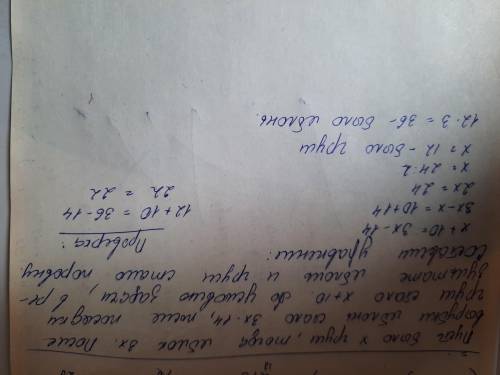 Пусть было х груш, тогда яблок 3х. После
вырубки яблонь стало 3х-14, после посадки
груш стало х+10. По условию задачи, в ре-
зультате яблонь и груш стало поровну
Составим уравнение:
х+10 = 3х-14
3х-х = 10+14
2х = 24
х = 24:2
х = 12 - было груш
12·3 = 36 - было яблонь.
Проверка:
12+10 = 36-14
22 = 22